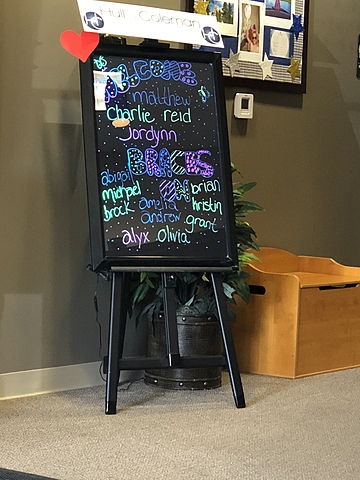 Hull & Coleman
WELCOME
matthew
charlie reid
Jordynn
BRACES
abigail ON brian
michael amelia kristin
brock andrew grant
alyx olivia